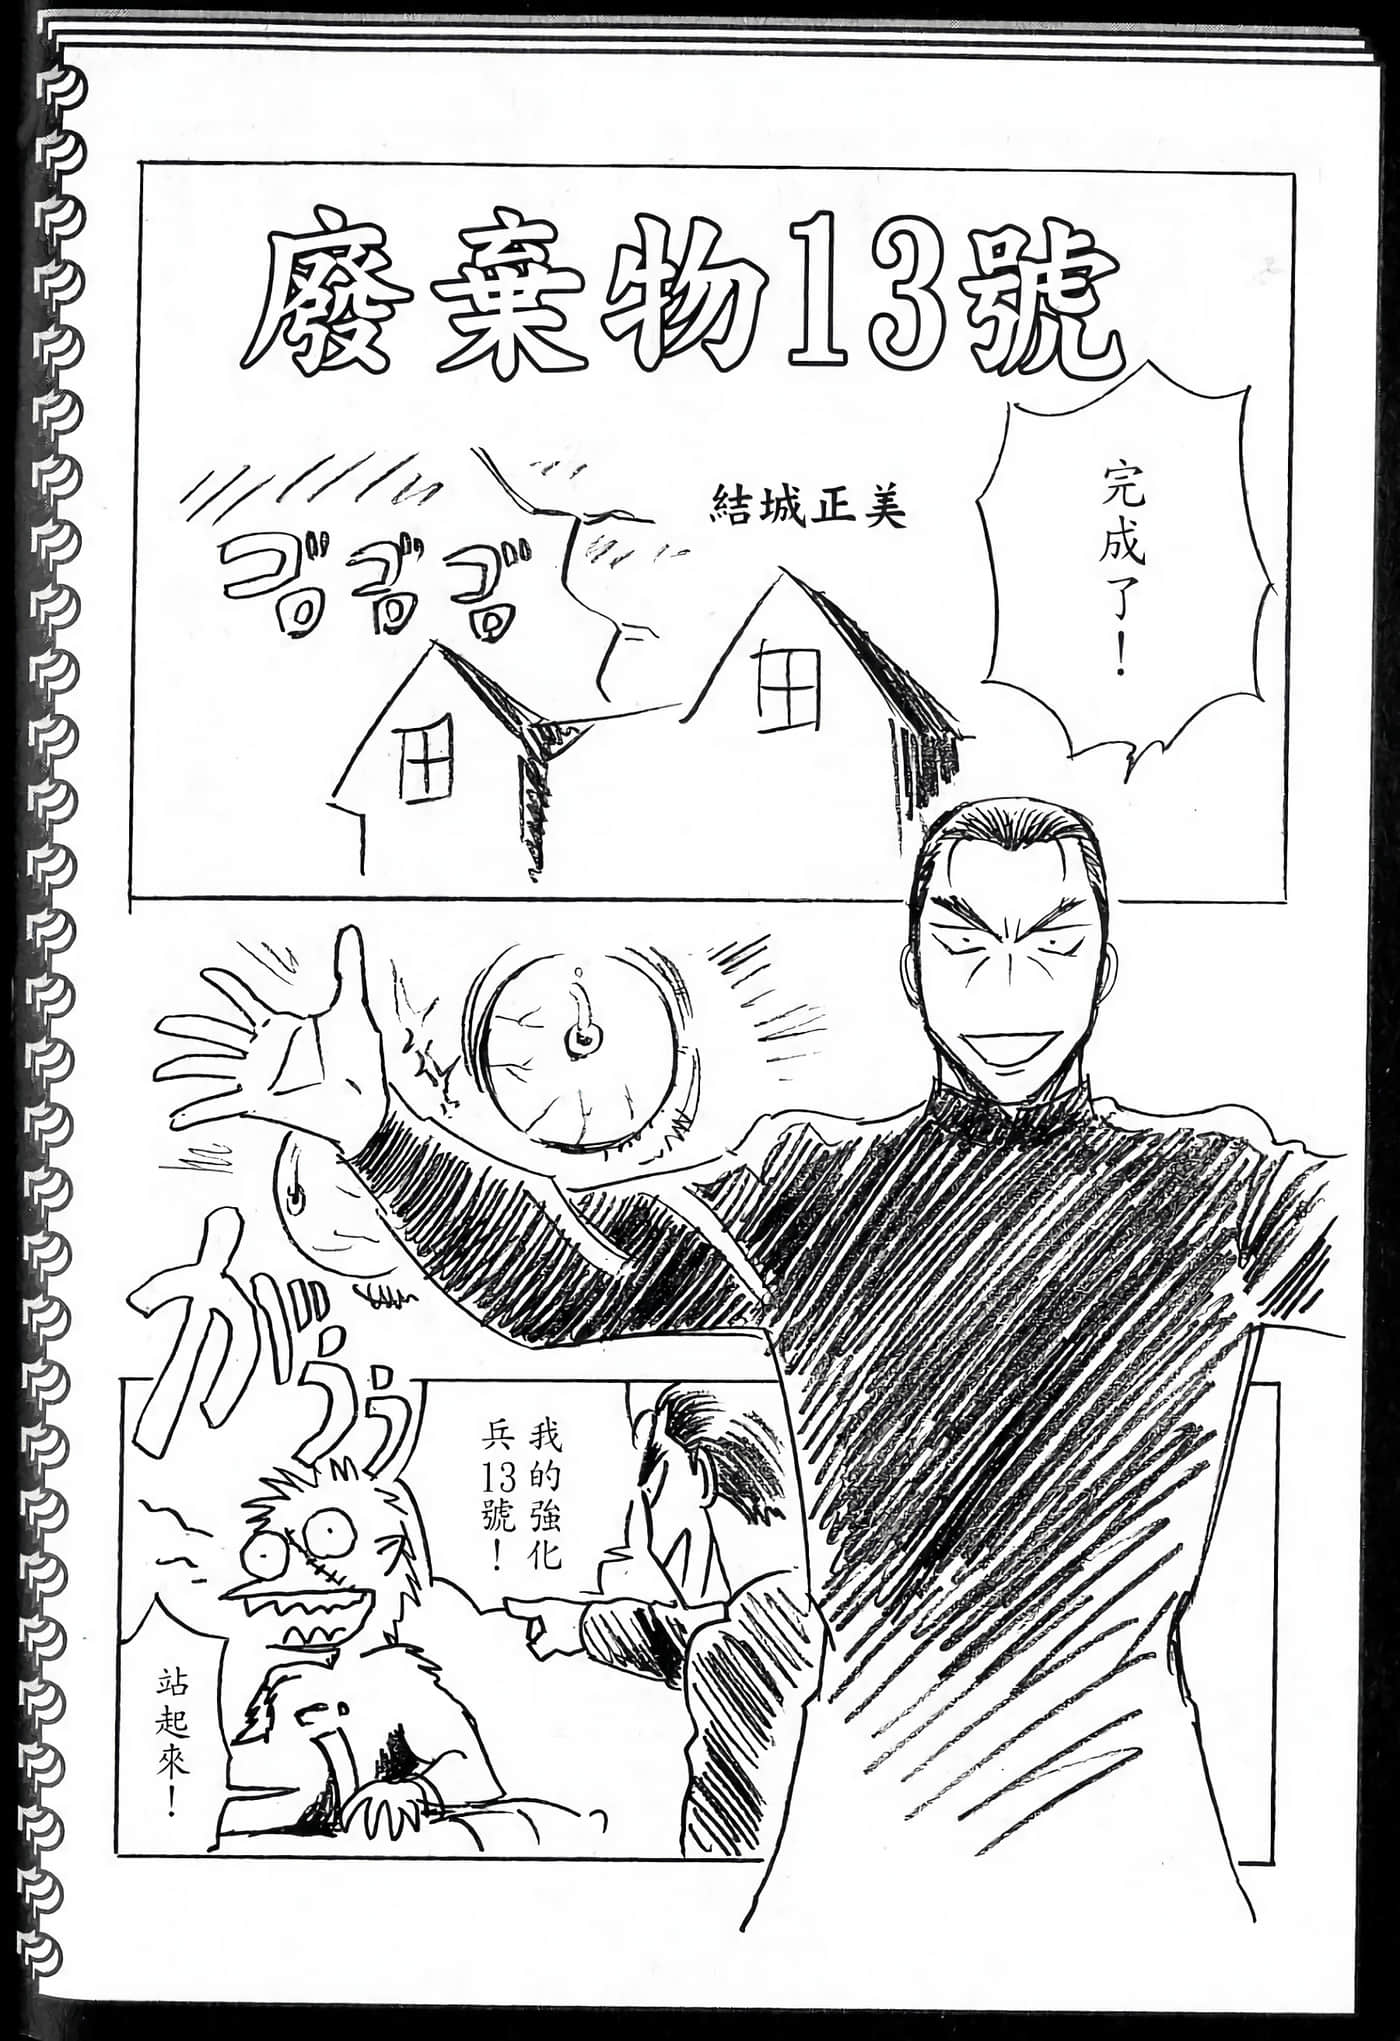 廢棄物13號
完成了！
結城正美
ゴゴゴ
がうぅ
我的強化
兵13號！
站起來！